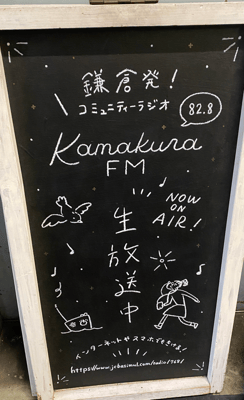 鎌倉発!
コミュニティーラジオ
82.8
Kamakura
FM
NOW
ON
AIR!
生放送中
インターネットやスマホでもきける♪
https://www.jcbasimul.com/radio/768/